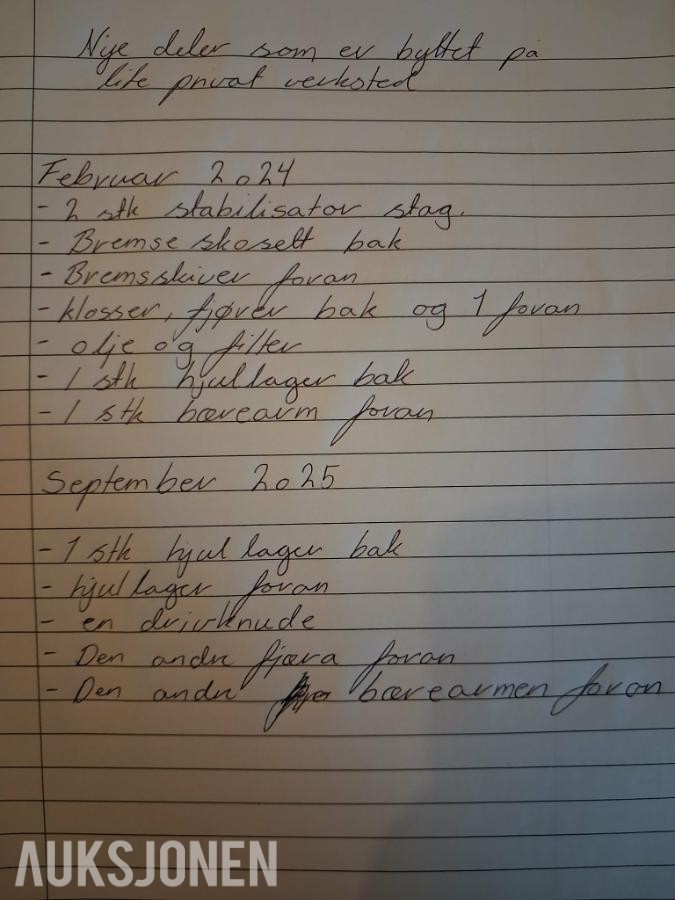 Nye deler som er byttet på
lite privat verksted
Februar 2024
- 2 stk stabilisator stag.
- Bremse skosett bak
- Bremsskiver foran
- klosser, fjører bak og 1 foran
- olje og filter
- 1 stk hjullager bak
- 1 stk bærearm foran
September 2025
- 1 stk hjul lager bak
- hjullager foran
- en drivknude
- Den andre fjæra foran
- Den andre bærearmen foran
AUKSJONEN